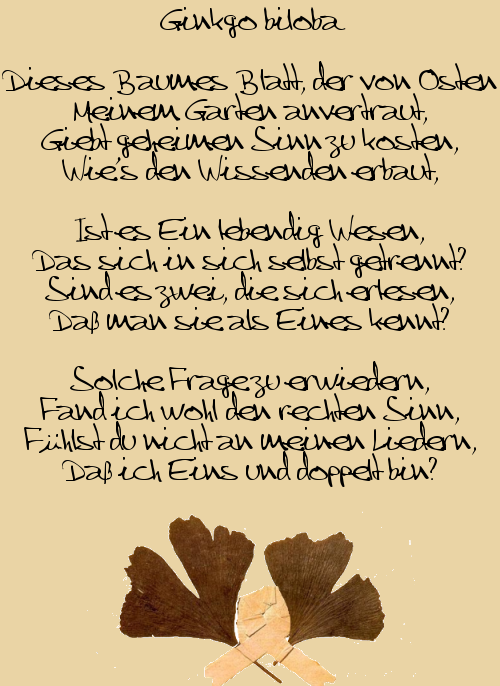 Ginkgo biloba
Dieses Baumes Blatt, der von Osten
Meinem Garten anvertraut,
Giebt geheimen Sinn zu kosten,
Wie's den Wissenden erbaut,
Ist es Ein lebendig Wesen,
Das sich in sich selbst getrennt?
Sind es zwei, die sich erlesen,
Daß man sie als Eines kennt?
Solche Frage zu erwiedern,
Fand ich wohl den rechten Sinn,
Fühlst du nicht an meinen Liedern,
Daß ich Eins und doppelt bin?